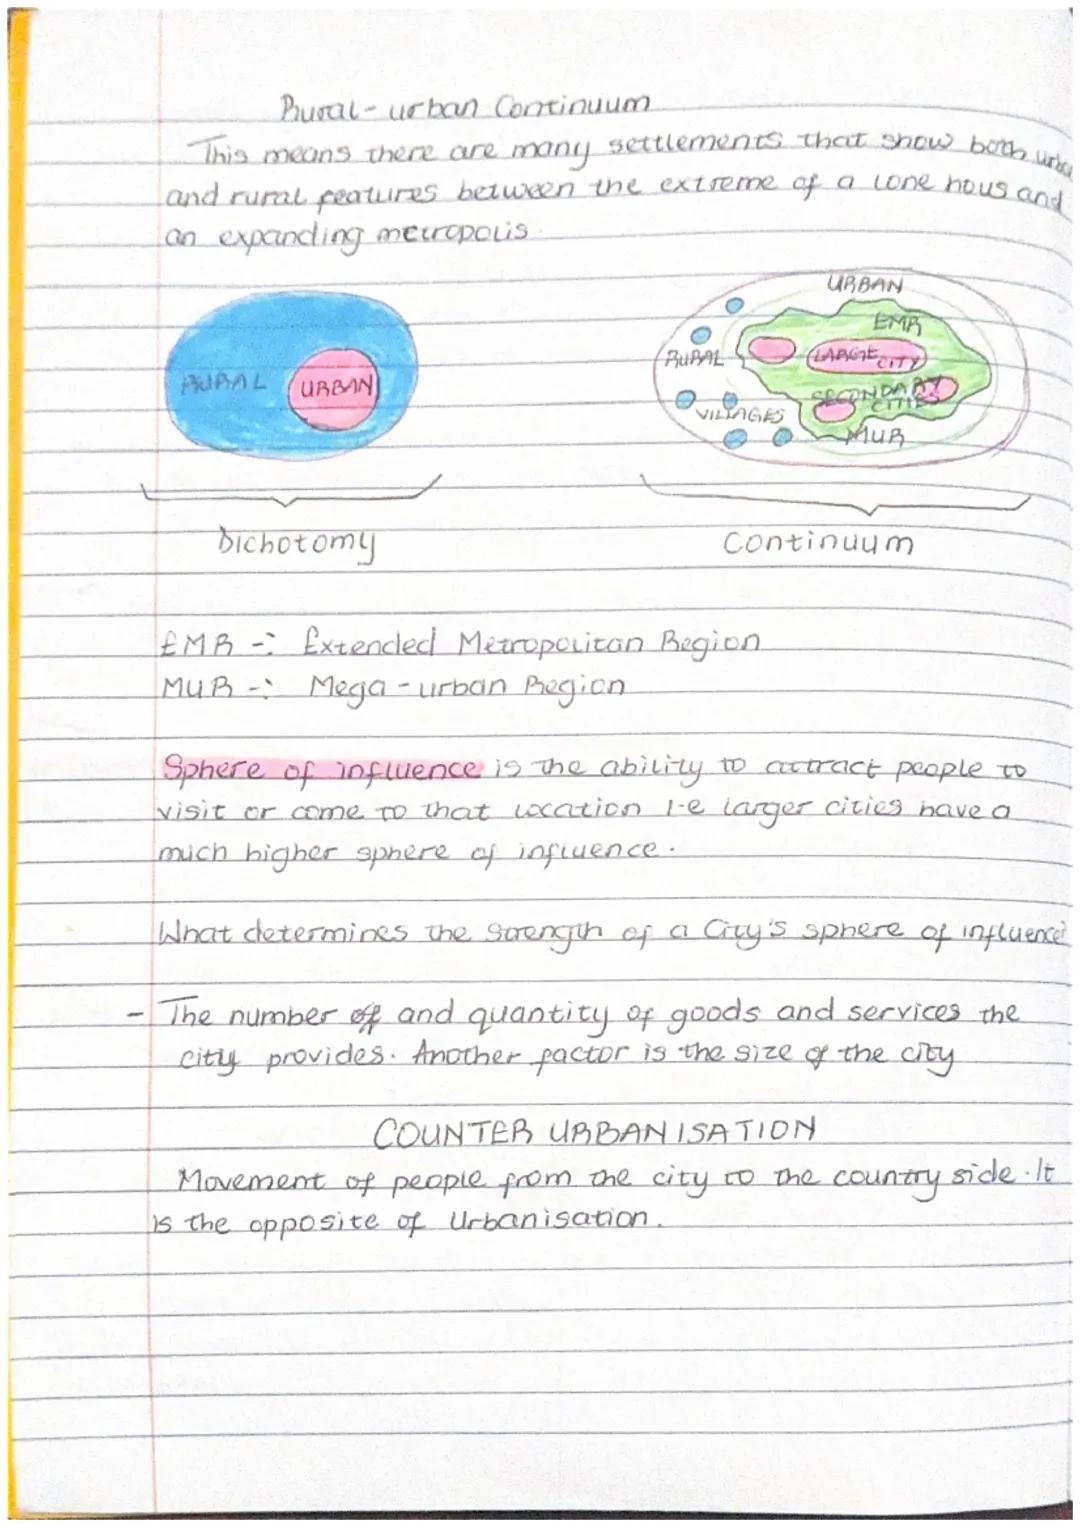 Rural-urban Continuum
This means there are many settlements that show both urba
and rural features between the extreme of a lone hous and
an expanding metropolis.
RURAL
URBAN
URBAN
EMR
RURAL
LARGE CITY
SECONDARY
CITIES
VILLAGES
MUR
Dichotomy
Continuum
EMR -: Extended Metropolitan Region
MUR -: Mega-urban Region
Sphere of influence is the ability to attract people to
visit or come to that location I-e larger cities have a
much higher sphere of influence.
What determines the Strength of a City's sphere of influence?
- The number of and quantity of goods and services the
city provides. Another factor is the size of the city
COUNTER URBANISATION
Movement of people from the city to the country side. It
is the opposite of Urbanisation.